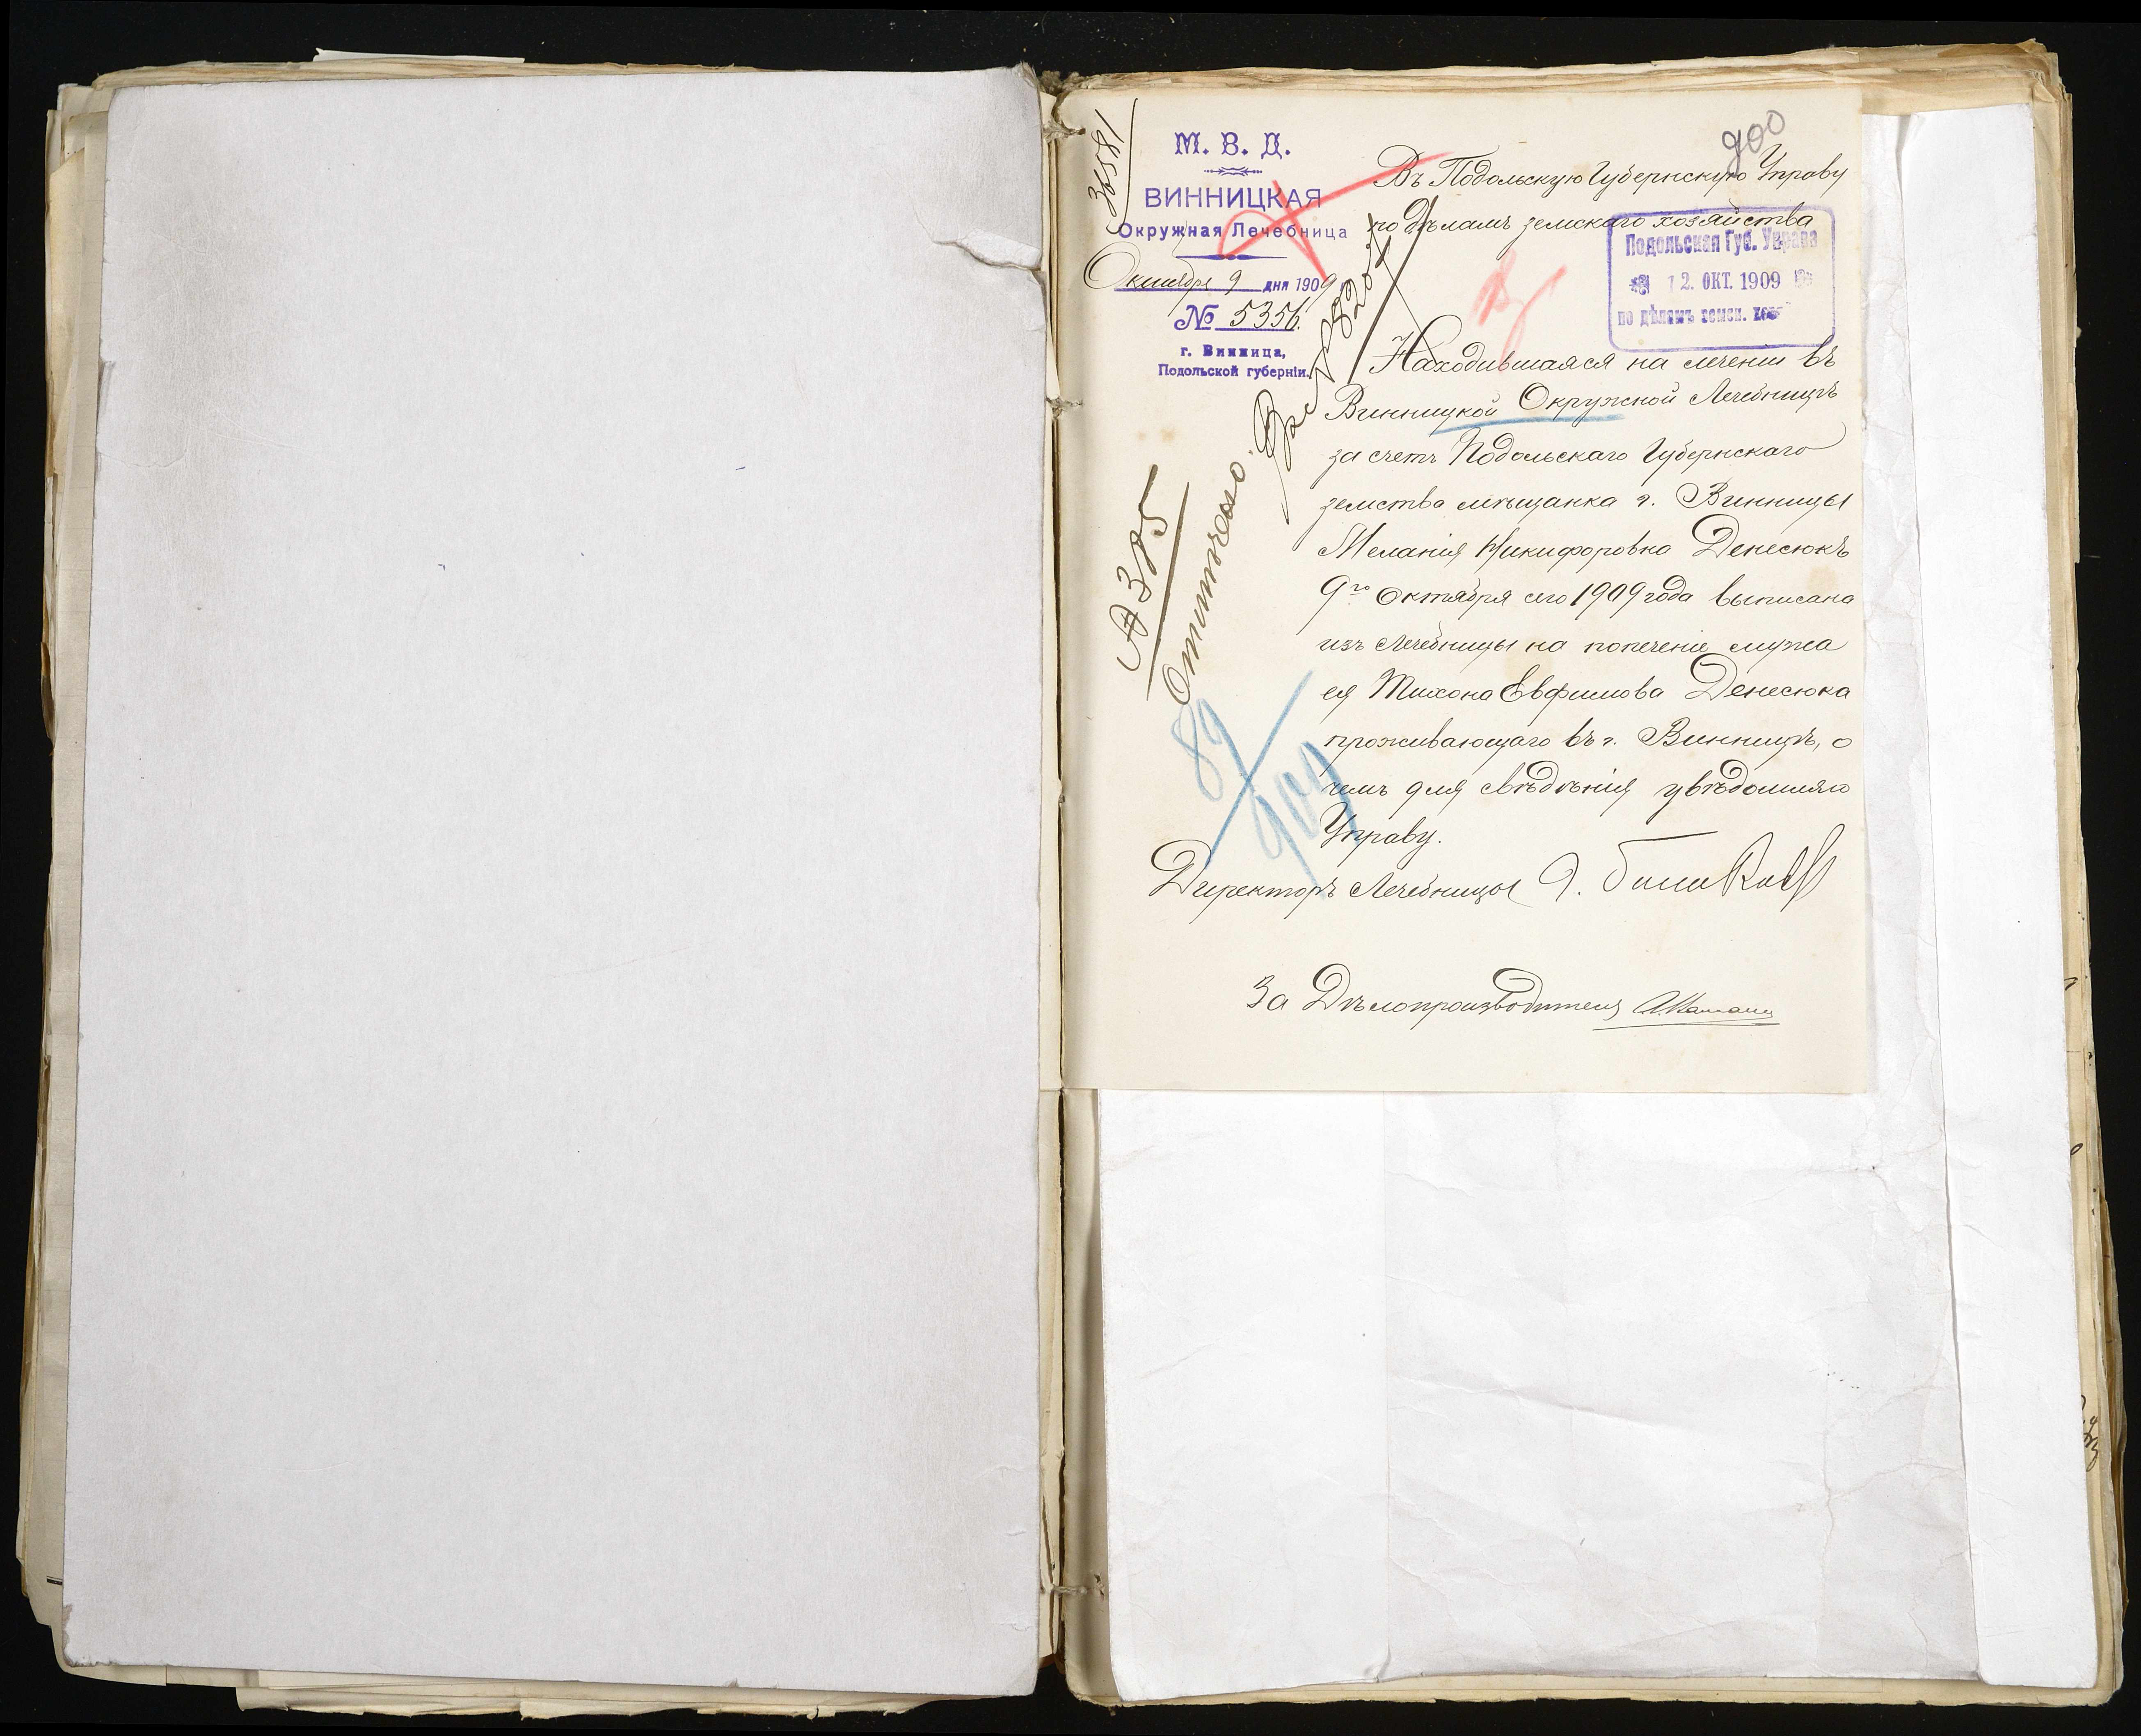 36581
М. В. Д.
ВИННИЦКАЯ
Окружная Лечебница
Октября 9 дня 1909
№ 5356.
г. Винница,
Подольской губерніи.
900
Въ Подольскую Губернскую Управу
по дѣламъ земскаго хозяйства
Подольская Губ. Управа
12. ОКТ. 1909
по дѣламъ земск. хоз.
Находившаяся на леченіи въ
Винницкой Окружной Лечебницѣ
за счетъ Подольскаго Губернскаго
земства мѣщанка г. Винницы
Меланія Никифоровна Денесюкъ
9го Октября сего 1909 года выписана
изъ лечебницы на попеченіе мужа
ея Тихона Евфимова Денесюка
проживающаго въ г. Винницѣ, о
чемъ для свѣдѣнія увѣдомляю
Управу.
Директоръ Лечебницы
За Дѣлопроизводителя
Отмѣчено.
89